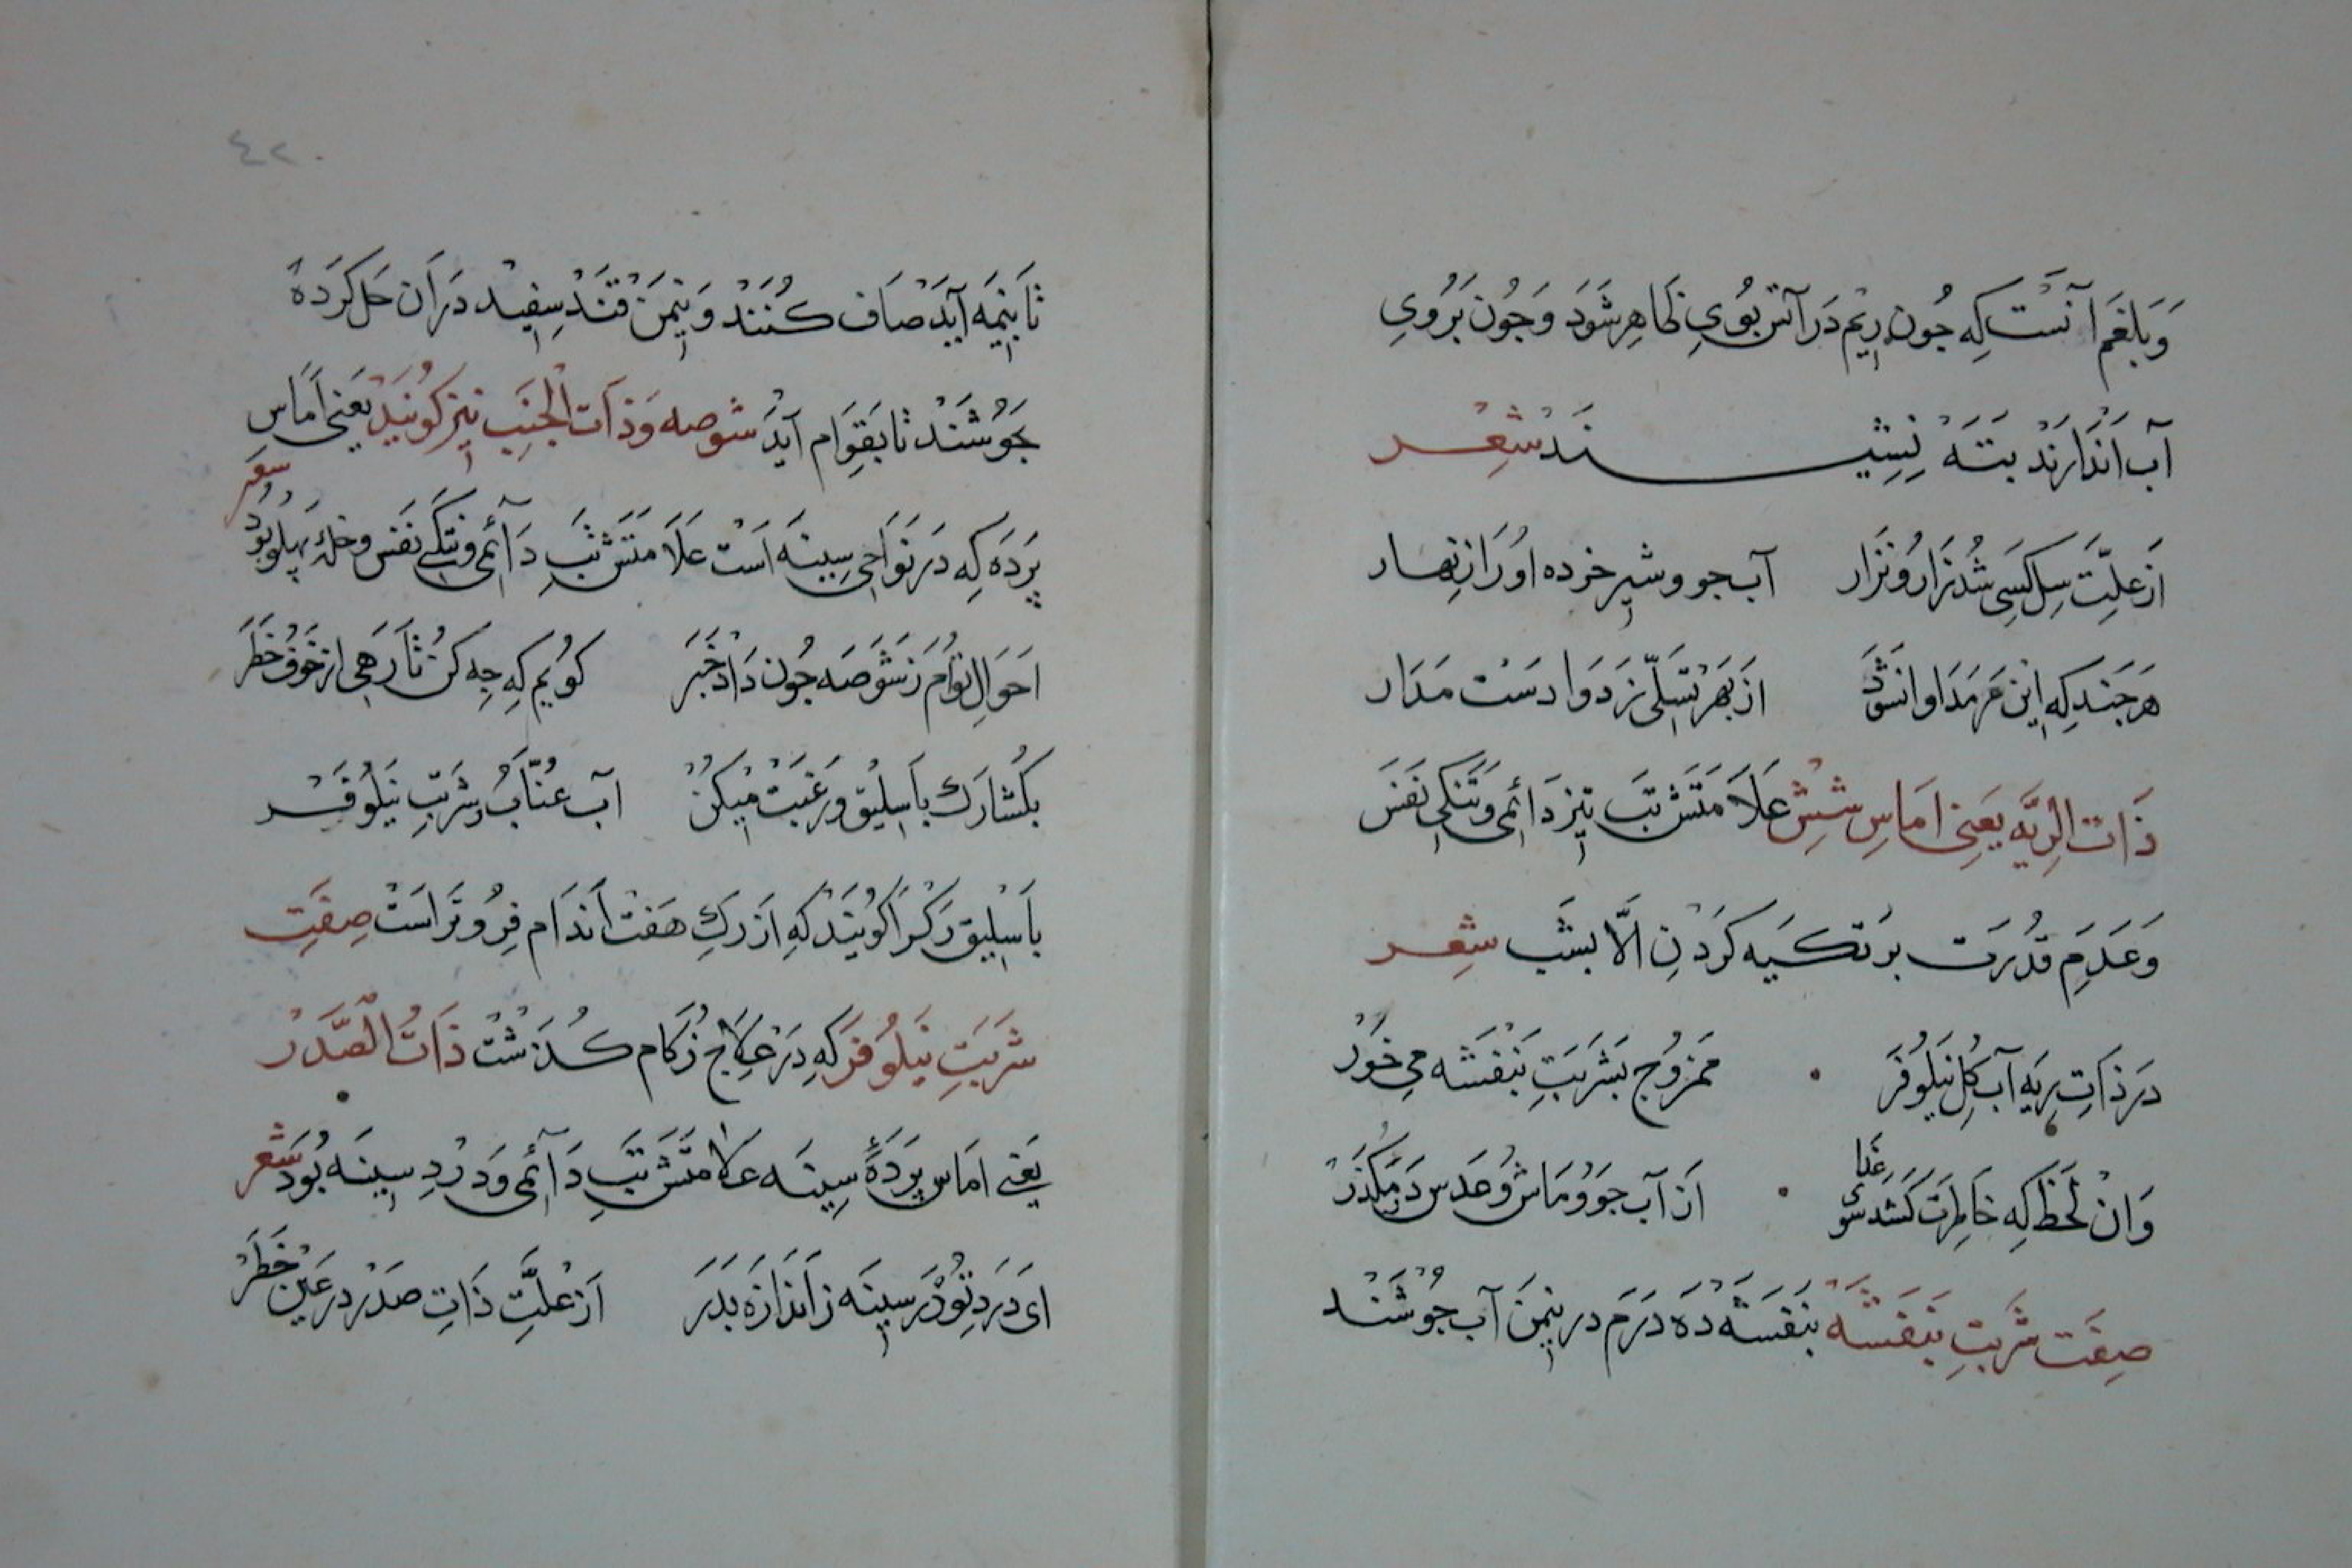 وَبَلغَم آنَست كِه جُون رِيْم دَر آتش بُويِ ظَاهِر شَوَد وَجُون بَرُويِ
آب اَندَازَند بتَه نِشِيـــنَند شِعر
اَز عِلَّتِ سِل كَسى شُد زَار وُ نَزَار آب جو وشير خرده اورا زنهار
هَر جَند كِه اين مَرض مَدَاوا نشَوَد از بَهر تسَلّى زدَوا دَست مَدَار
ذَات الرِيَه يَعنِى امَاسِ شُشْ عَلَامَتش تبَ تيز دَائمى وتَنكى نَفَس
وَعَدَمِ قدُرَت برَ تكيَه كَردَنِ الّا بپشَت شِعر
در ذَاتِ رِيَه آب كُل نيلُوفَر مَمزوُج بَشَربَتِ بَنَفشَه مى خَور
وَان لَحظَه كِه خَاطِرَت كَشَد سوى غذا اَز آب جَو وُ مَاش وَعَدَس دَر مَكذَر
صِفَت شَربَتِ بَنَفشَه بَنَفشَه دَه دَرَم در نيمَن آب جُوشَند
٤٢
تا بنِيمَه آيَد صَاف كُنَند وَنِيمَن قَند سفِيد درَان حَل كَردَه
بجَوُشَند تا بَقِوَام آيَد شوصه وَذَات الجَنب نيز كُويَند يَعنى اَمَاس
پَردَه كِه دَر نوَاحى سِينَه اَست عَلَامَتش تَبِ دَآئمى وتنكى نَفَس وخلۀ پَهلو بُوَد شعر
احَوالِ توام زَ شَوصَه جُون دَاد خَبَر كويُم كِه جِه كن تا رَهى از خَوف خَطَر
بكشا رَك باسليق ورَغبَت ميكن آب عُنّاب وشَربَتِ نيلُوفَر
باَسليق رَكى رَا كويَند كِه از رَكِ هَفت اَندَام فِرُوتَر اسَت صِفَتِ
شَربَتِ نيلُوفَر كِه دَر عِلاج زُكَام كُذَشت ذَاتُ الصَّدَر
يَعنى امَاس پَردَۀ سِينَه علامَتش تَبِ دَآئمى وَدَردِ سِينَه بُوَد شعر
اى دَرد تو دَر سِينَه زاَندَازَه بدَر اَز عِلَّتِ ذَاتِ صدَر در عَين خَطَر